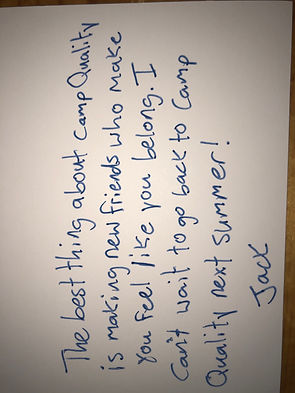 The best thing about Camp Quality
is making new friends who make
You feel like you belong. I
Can't wait to go back to Camp
Quality next summer!
Jack